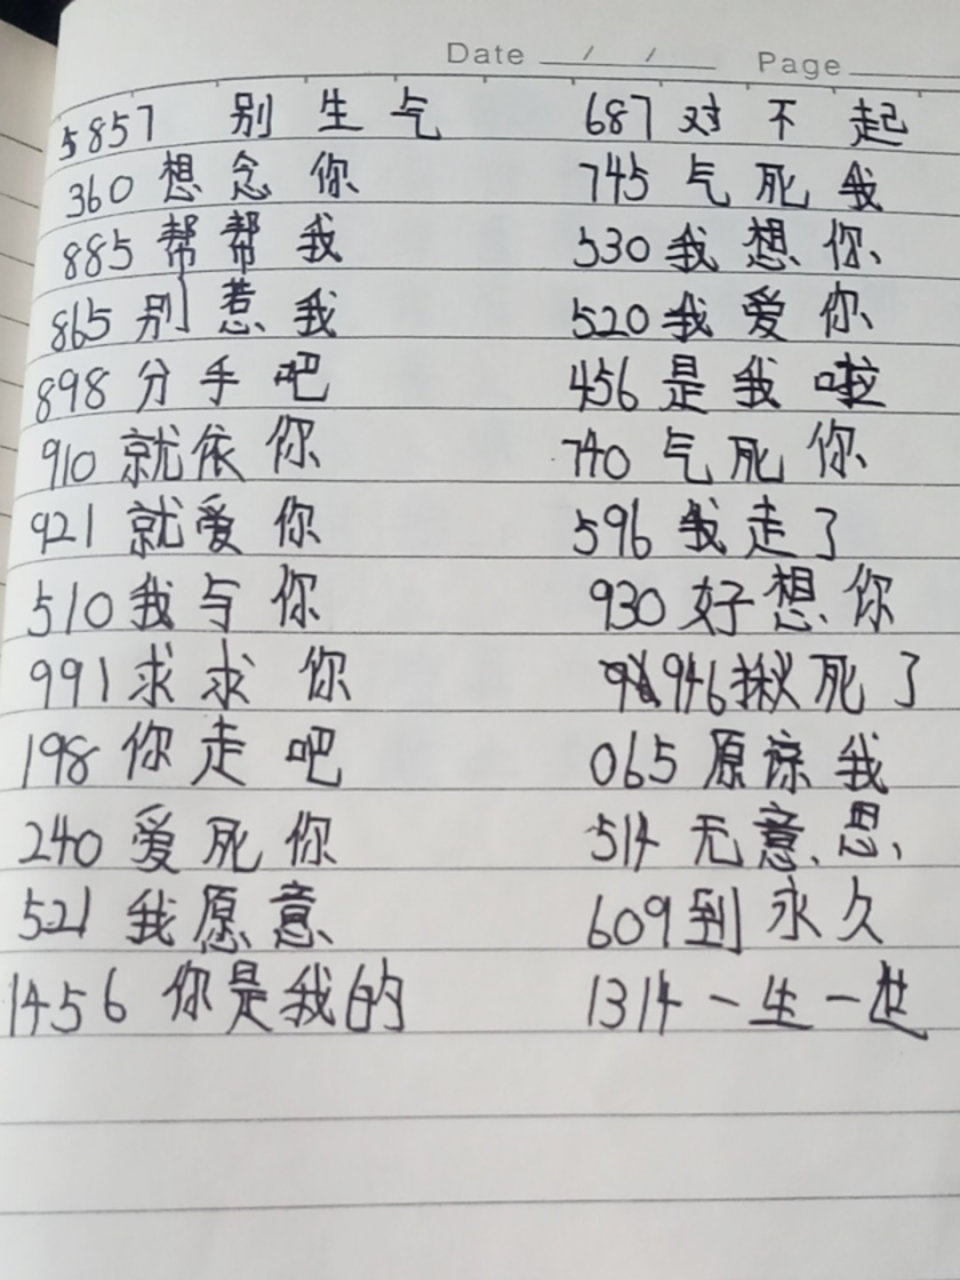 Date / / Page
5857 别生气 687 对不起
360 想念你 745 气死我
885 帮帮我 530 我想你
865 别惹我 520 我爱你
898 分手吧 456 是我啦
910 就依你 740 气死你
921 就爱你 596 我走了
510 我与你 930 好想你
991 求求你 946 揪死了
198 你走吧 065 原谅我
240 爱死你 514 无意思
521 我愿意 609 到永久
1456 你是我的 1314 一生一世